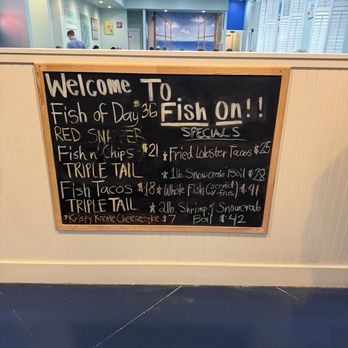 Welcome To
Fish On!!
Fish of Day $36
RED SNAPPER
Fish n' Chips $21
TRIPLE TAIL
Fish Tacos $18
TRIPLE TAIL
*Krispy Kreme Cheesecake $7
SPECIALS
*Fried Lobster Tacos $25
*1lb. Snowcrab Boil $28
*Whole Fish (scored/fried) $41
*2lb. Shrimp & Snowcrab
Boil $42